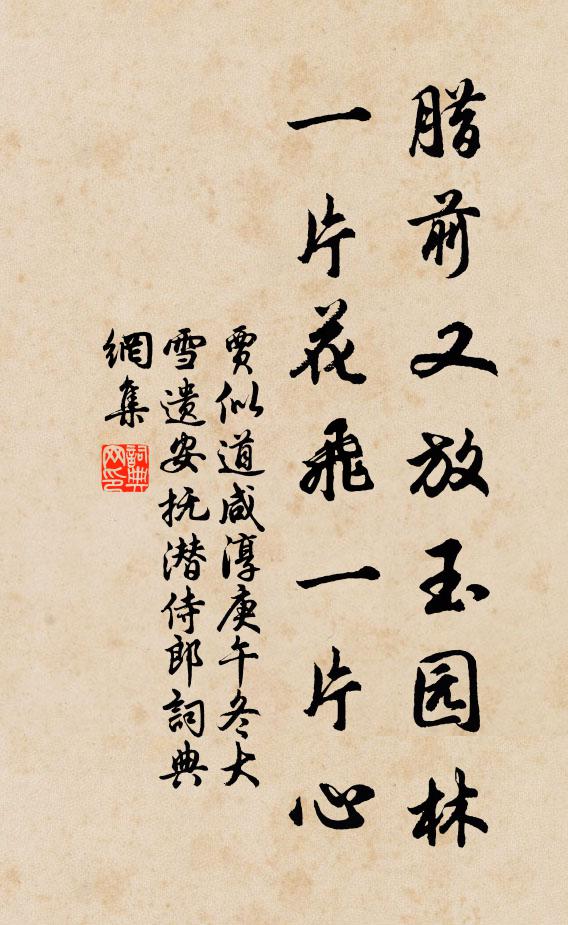 腊前又放玉园林
一片花飛一片心
賈似道咸淳庚午冬大
雪遺安抚潜侍郎詞典
網集
詞典
网印